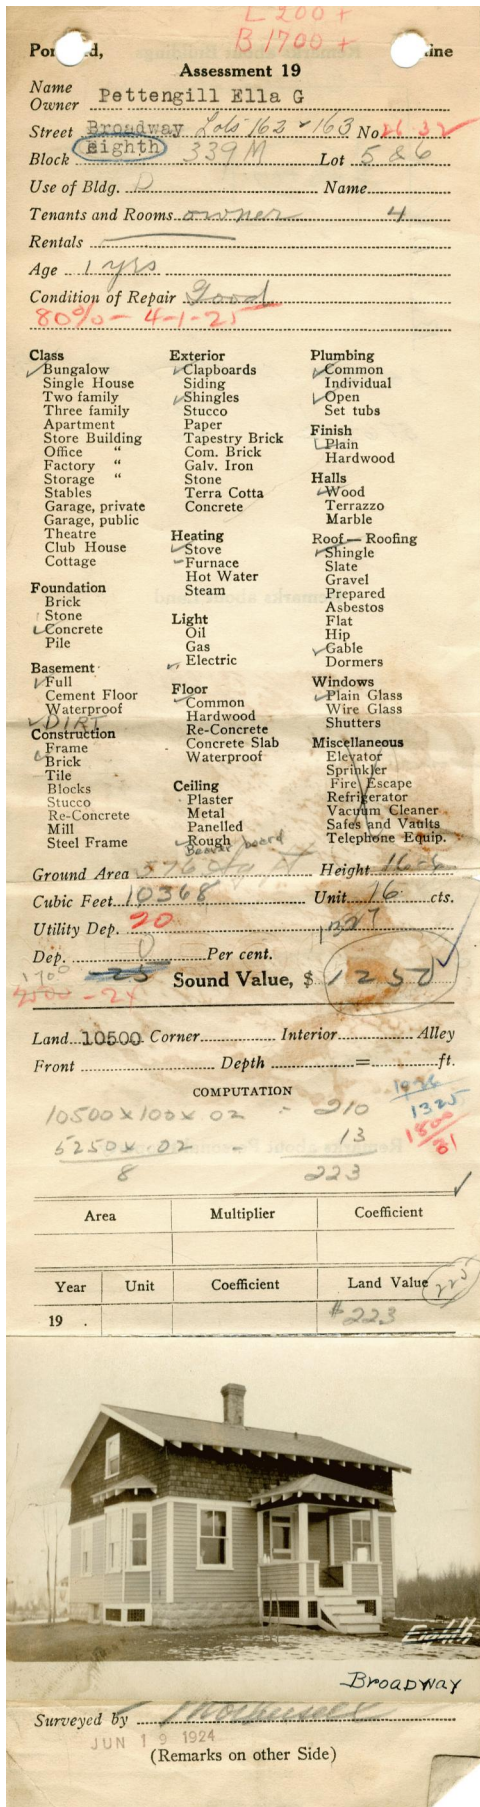 L 200 +
B 1700 +
Assessment 19
Name
Owner Pettengill Ella G
Street Broadway Lots 162 & 163 No. 26-32
Eighth
Block 339 M Lot 5 & 6
Use of Bldg. D Name
Tenants and Rooms owner 4
Rentals
Age 1 yrs
Condition of Repair Good
80% - 4-1-25
Class
Bungalow
Single House
Two family
Three family
Apartment
Store Building
Office "
Factory "
Storage "
Stables
Garage, private
Garage, public
Theatre
Club House
Cottage
Foundation
Brick
Stone
Concrete
Pile
Basement
Full
Cement Floor
Waterproof
DIRT
Construction
Frame
Brick
Tile
Blocks
Stucco
Re-Concrete
Mill
Steel Frame
Exterior
Clapboards
Siding
Shingles
Stucco
Paper
Tapestry Brick
Com. Brick
Galv. Iron
Stone
Terra Cotta
Concrete
Heating
Stove
Furnace
Hot Water
Steam
Light
Oil
Gas
Electric
Floor
Common
Hardwood
Re-Concrete
Concrete Slab
Waterproof
Ceiling
Plaster
Metal
Panelled
Rough
Beaver board
Plumbing
Common
Individual
Open
Set tubs
Finish
Plain
Hardwood
Halls
Wood
Terrazzo
Marble
Roof — Roofing
Shingle
Slate
Gravel
Prepared
Asbestos
Flat
Hip
Gable
Dormers
Windows
Plain Glass
Wire Glass
Shutters
Miscellaneous
Elevator
Sprinkler
Fire Escape
Refrigerator
Vacuum Cleaner
Safes and Vaults
Telephone Equip.
Ground Area 576 Height
Cubic Feet 10368 Unit 16 cts.
Utility Dep. 20 1327
Dep. 0 Per cent.
1700 25 Sound Value, $ 1250
Land 10500 Corner Interior Alley
Front Depth = ft.
COMPUTATION
10500 x 100 x 02 - 210
5250 x 02 - 13
8 223
1325
1800
Area Multiplier Coefficient
Year Unit Coefficient Land Value 225
19 . $223
Eighth
Broadway
Surveyed by
JUN 19 1924
(Remarks on other Side)